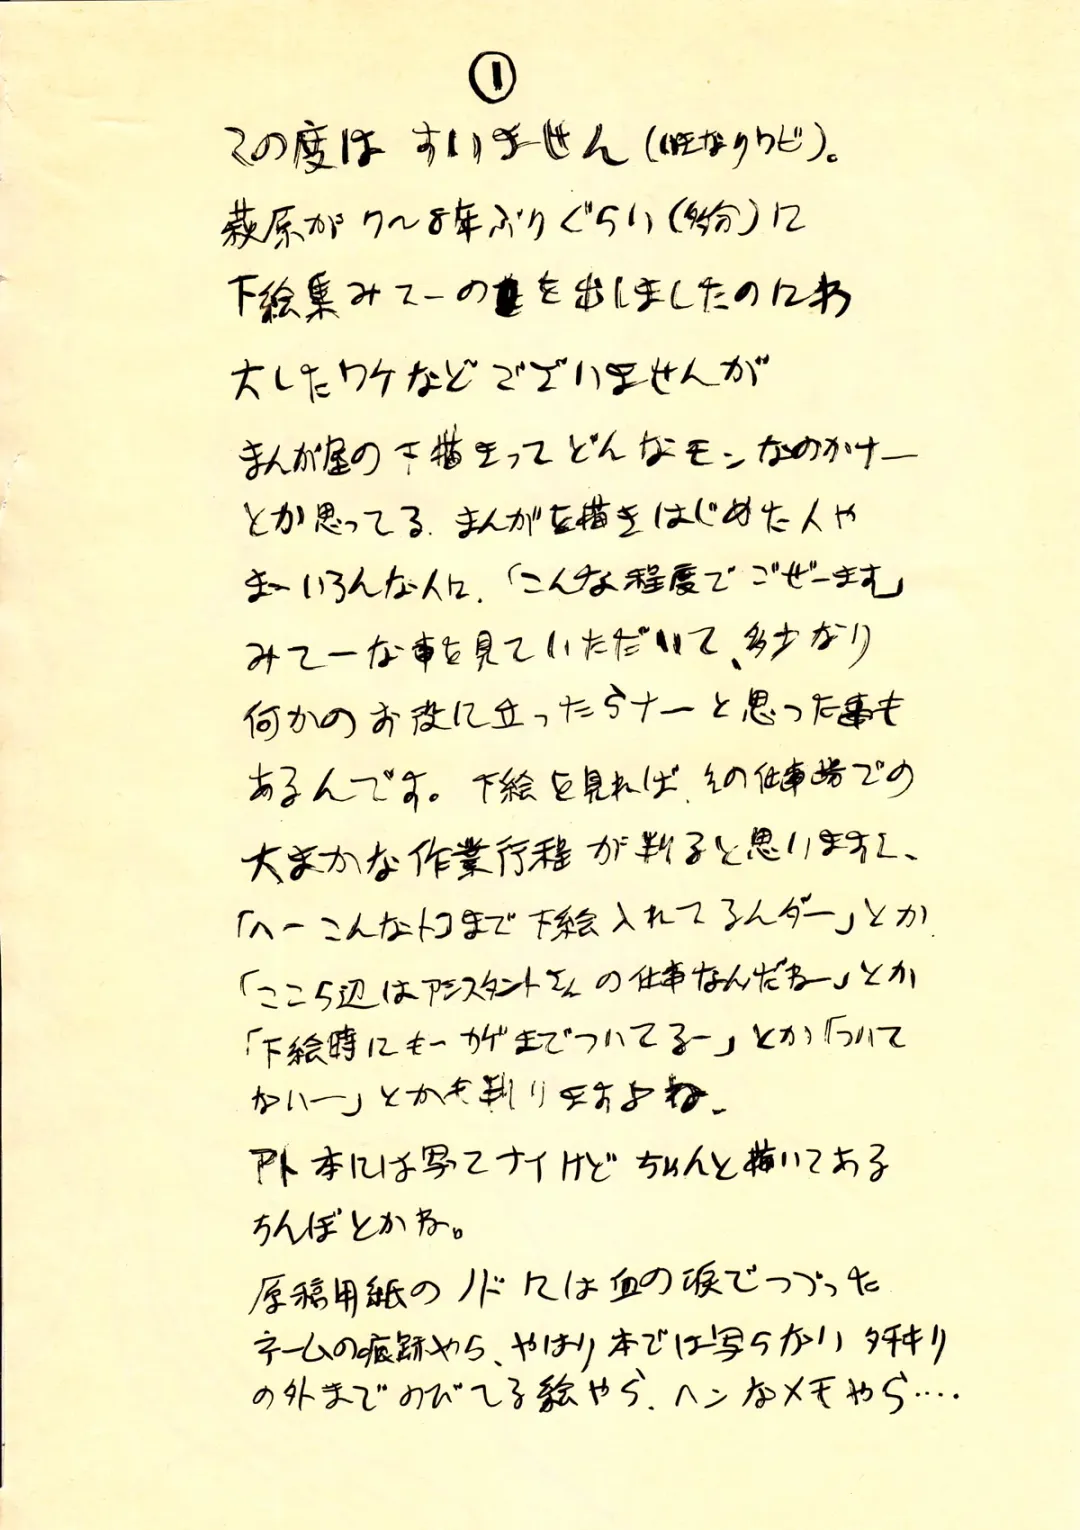 ①
この度は すいません(いきなりワビ)。
萩原が 7〜8年ぶりぐらい(多分)に
下絵集みてーのを出しましたのにわ
大したワケなどございませんが
まんが屋の下描きってどんなモンなのかナー
とか思ってる、まんがを描きはじめた人や
まーいろんな人に、「こんな程度でごぜーます」
みてーな事を見ていただいて、多少なり
何かのお役に立ったらナーと思った事も
あるんです。下絵を見れば、その仕事場での
大まかな作業行程が判ると思いますし、
「へーこんなトコまで下絵入れてるんダー」とか
「ここら辺はアシスタントさんの仕事なんだねー」とか
「下絵時にもーカゲまでついてるー」とか「ついて
ないー」とかも判りますよね、
アト本には写てナイけどちゃんと描いてある
ちんぽとかね。
原稿用紙のノドには血の涙でつづった
ネームの痕跡やら、やはり本では写らないタチキリ
の外までのびてる絵やら、ヘンなメモやら‥‥